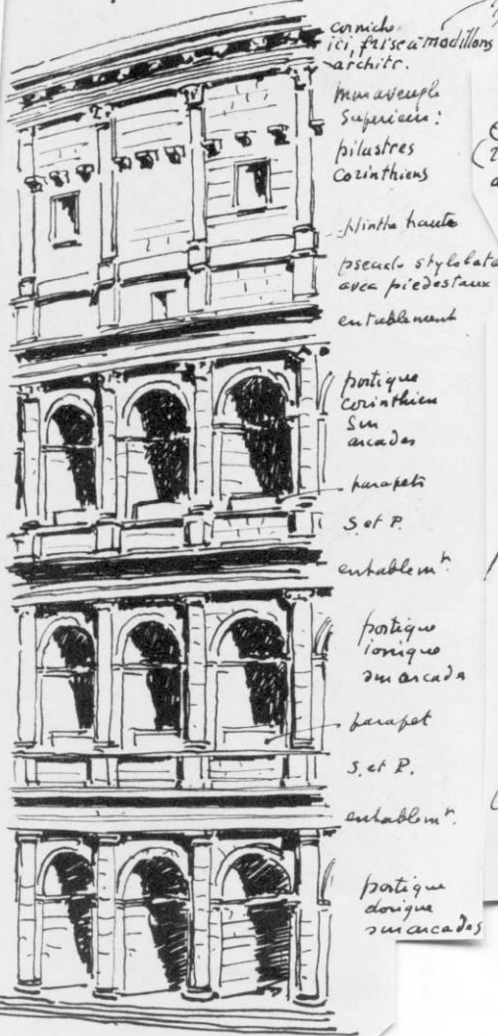 corniche
ici, frise à modillons
architr.
mur aveugle
supérieur:
pilastres
corinthiens
plinthe haute
pseudo stylobate
avec piédestaux
entablement
portique
corinthien
sur
arcades
parapets
S. et P.
entablemt.
portique
ionique
sur arcades
parapet
S. et P.
entablemt.
portique
dorique
sur arcades